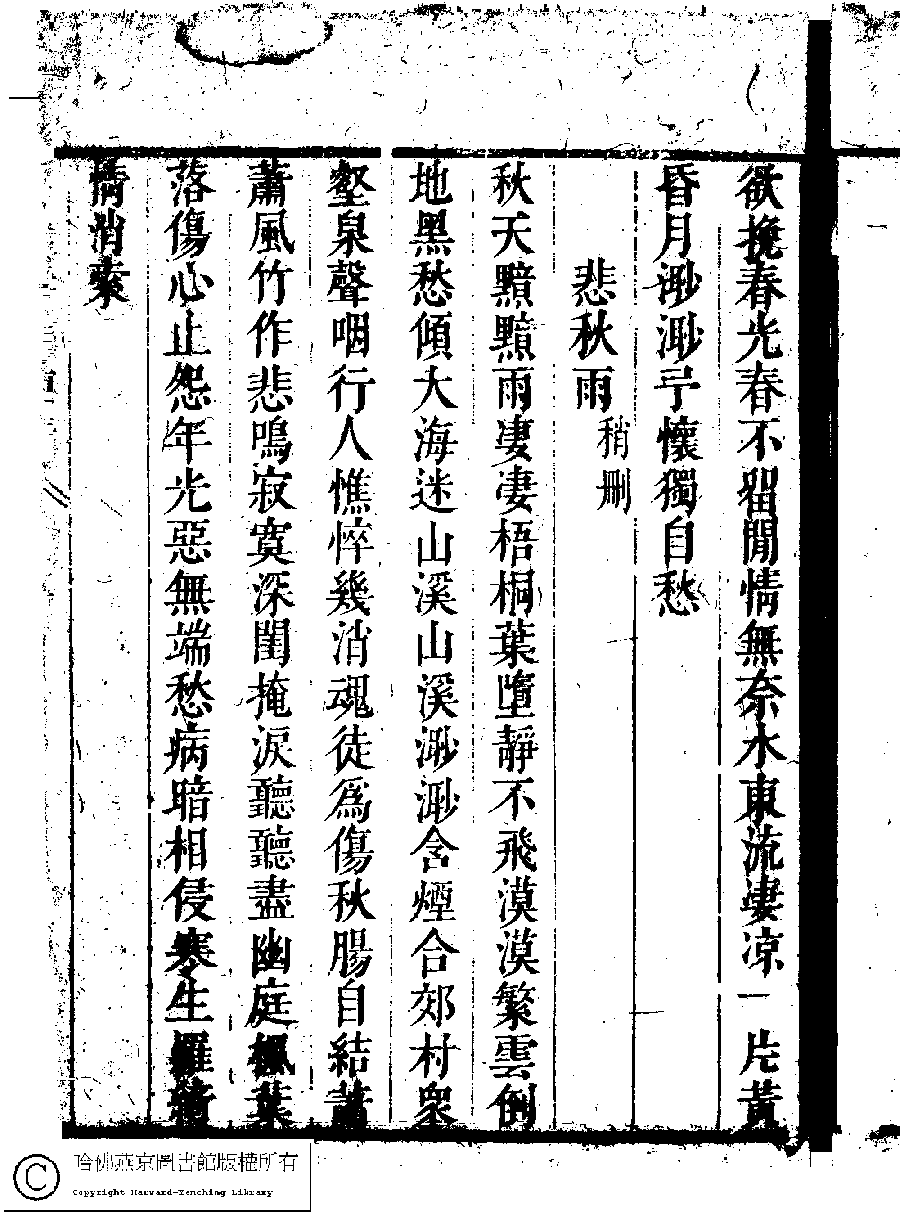 欲挽春光春不留閒情無奈水東流淒凉一片黃
昏月渺渺予懷獨自愁
悲秋雨 稍刪
秋天黯黯雨凄凄梧桐葉墮靜不飛漠漠繁雲倒
地黑愁傾大海迷山溪山溪渺渺含煙合郊村衆
壑泉聲咽行人憔悴幾消魂徒爲傷秋腸自結蕭
蕭風竹作悲鳴寂寞深閨掩淚聽聽盡幽庭楓葉
落傷心止怨年光惡無端愁病暗相侵寒生羅
情消索
哈佛燕京圖書館版權所有
Copyright Harvard-Yenching Library